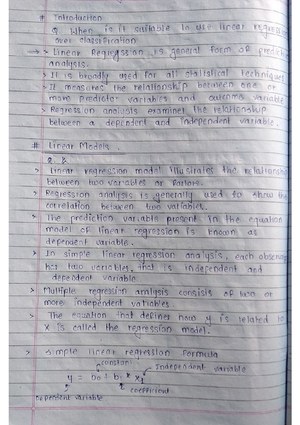 # Introduction
Q. When is it suitable to use linear regress
over classification
→ > Linear Regression is general form of predict
analysis.
> It is broadly used for all statistical techniques
> It measures the relationship between one or
more predictor variables and outcome variable
> Regression analysis examines the relationship
between a dependent and independent variable.
# Linear Models
> Linear regression model illustrates the relationship
between two variables or factors.
> Regression analysis is generally used to show the
correlation between two variables.
> The prediction variable present in the equation
model of linear regression is known as
dependent variable.
> In simple linear regression analysis, each observ
has two variables. that is independent and
dependent variable
> Multiple regression analysis consists of two or
more independent variables
> The equation that defines how y is related to
x is called the regression model.
> Simple linear regression formula
constant
Independent variable
y = b0 + b1 * x1
coefficient
Dependent variable